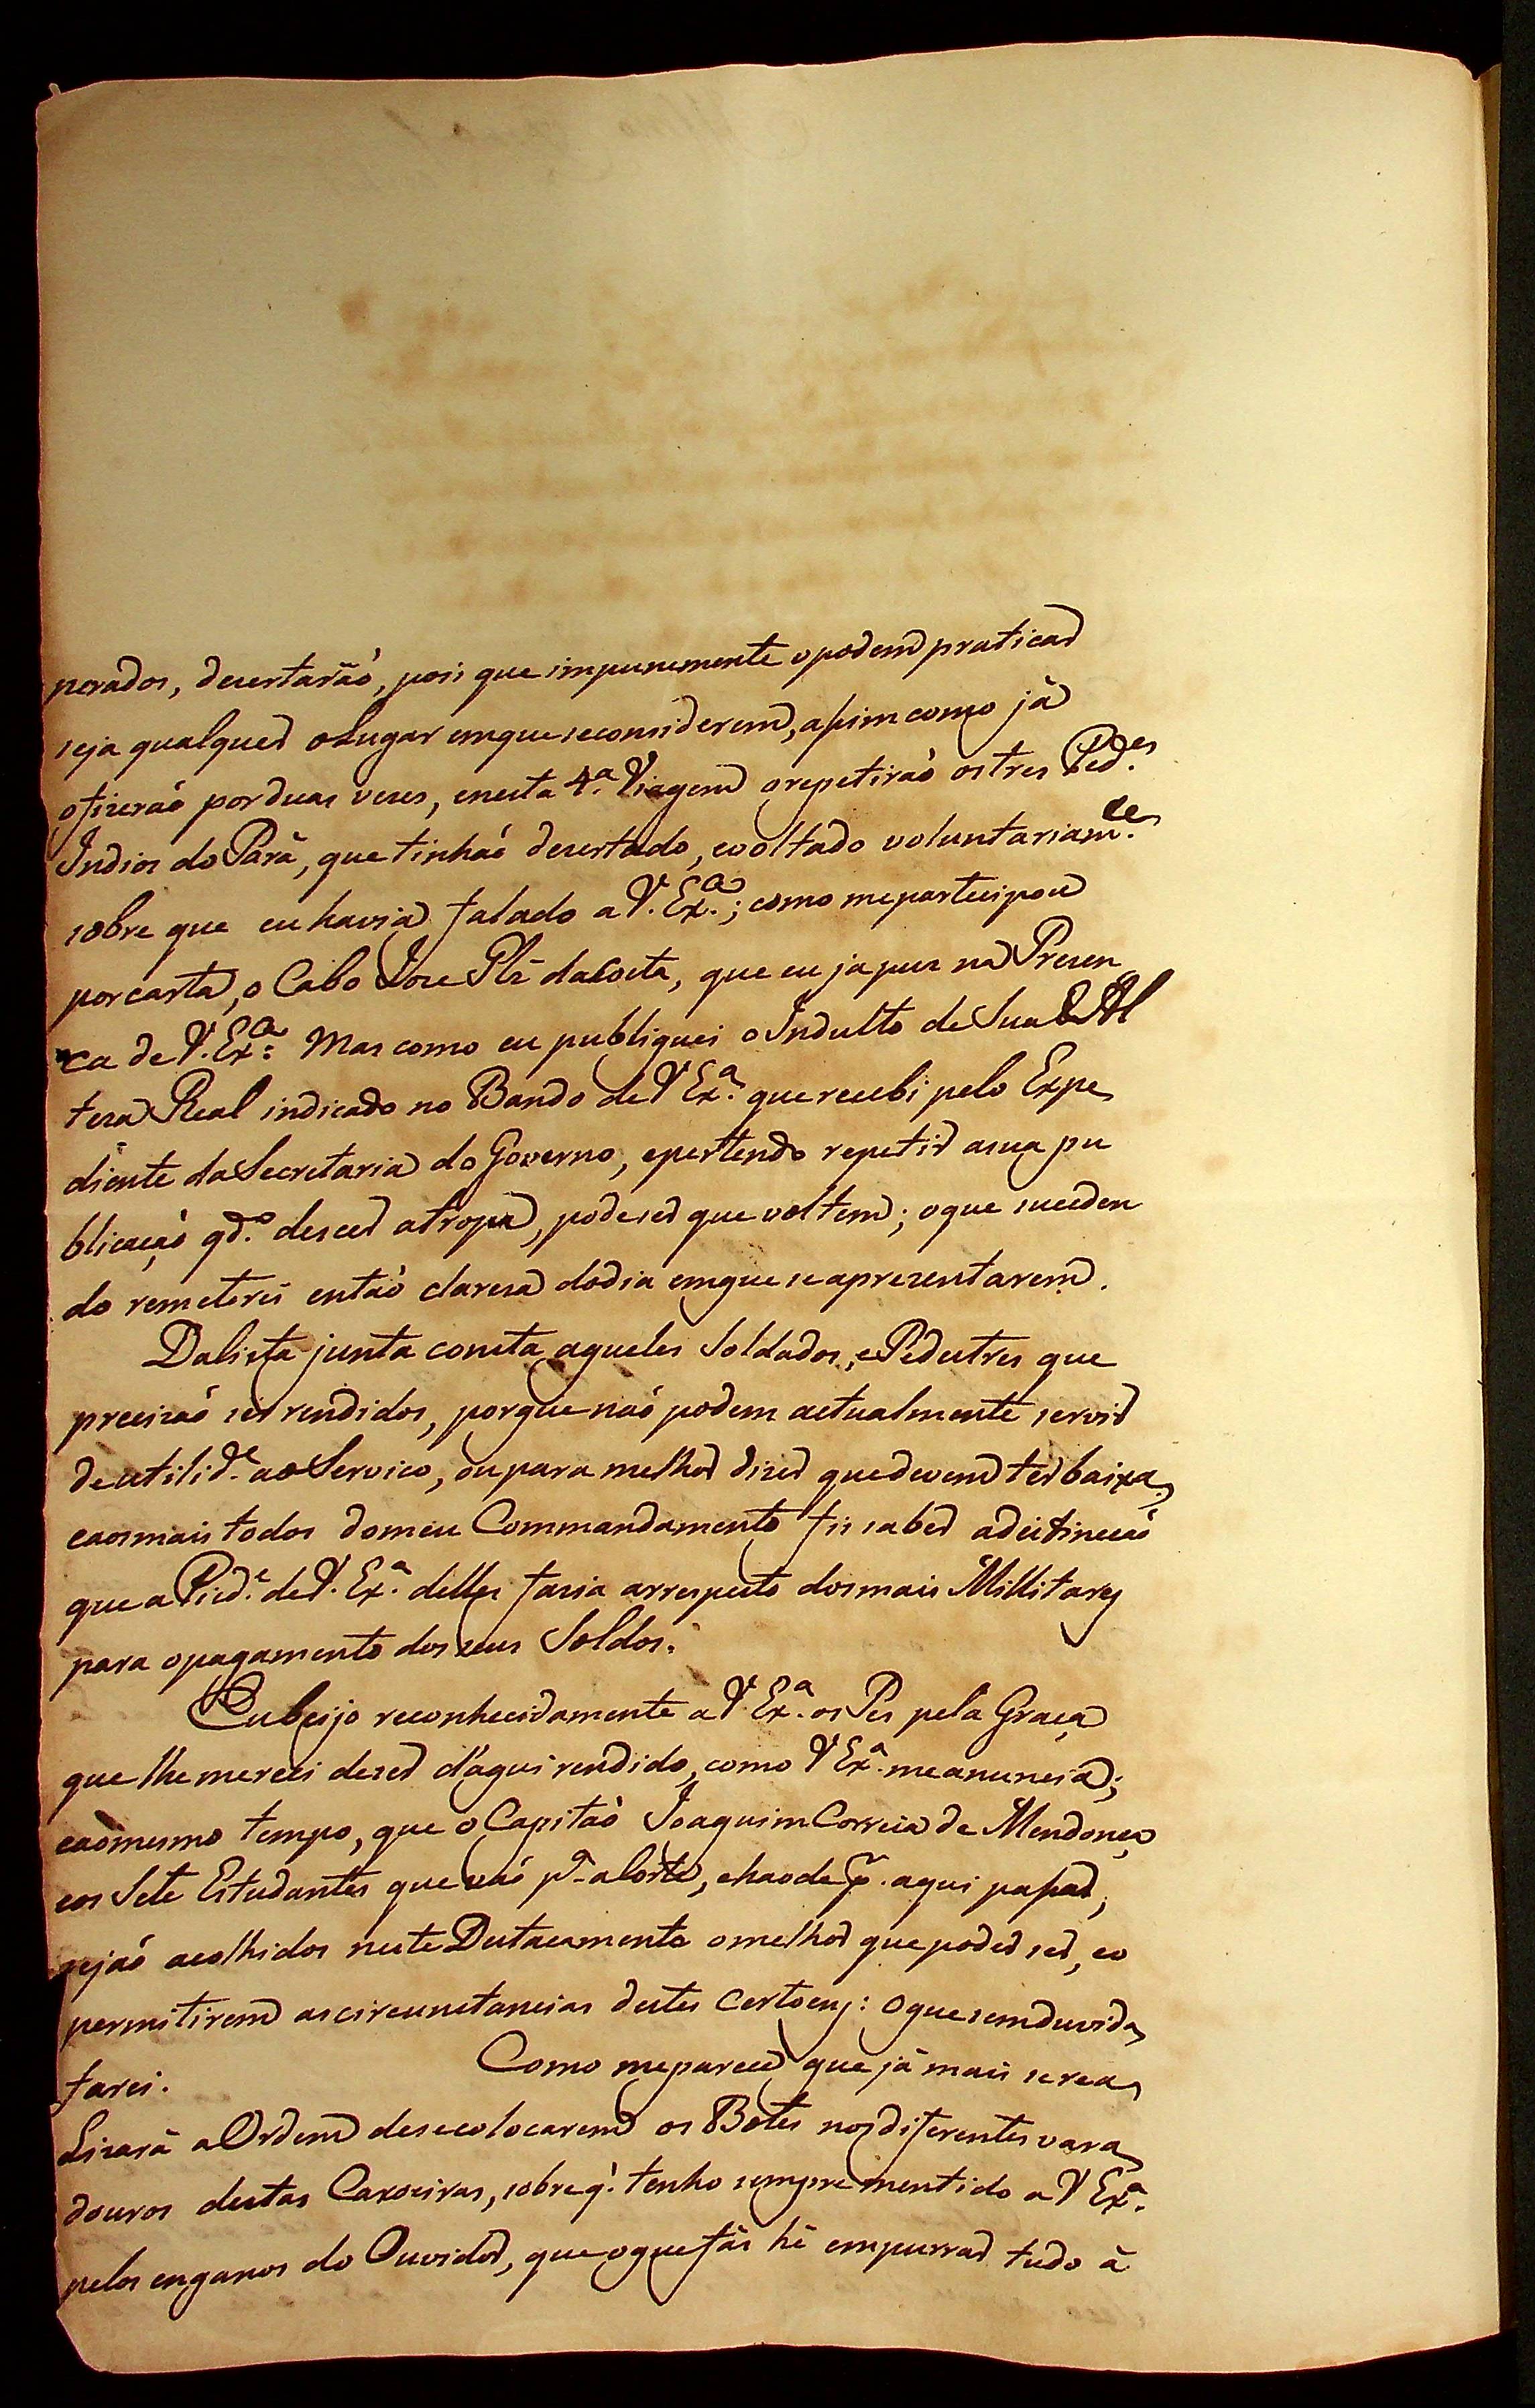 perados, desertaráõ, pois que impunemente opodem praticar
seja qualquer oLugar emque seconsiderem, assim como já
ofizeraõ por duas vezes, enesta 4.ª Viagem orepetiraõ os tres Ped.es
Indios do Pará, que tinhaõ desertado, evoltado voluntariam.te
sobre que eu havia falado a V. Ex.ª; como meparticipou
por carta, o Cabo Joze Plz daCosta, que eu ja puz na Prezen
ca de V. Ex.ª Mas como eu publiquei o Indulto de Sua Al
teza Real indicado no Bando de V Ex.ª que recebi pelo Expe
diente da Secretaria do Governo, epertendo repetir asua pu
blicaçaõ qd.º descer atropa, podeser que voltem; oque suceden
do remeterei entaõ clareza dodia emque seaprezentarem.
Dalista junta consta aqueles Soldados, ePedestres que
precizaõ ser rendidos, porque naõ podem actualmente servir
de utilid.e ao Servico, ou para melhor dizer que devem ter baixa,
eaos mais todos domeu Commandamento fis saber adistincçaõ
que a Pied.e de V. Ex.ª delles fazia arrespeito dos mais Millitares
para opagamento dos seus Soldos.
Eu beijo reconhecidamente a V. Ex.ª os Pes pela Graça
que lhe mereci deser d'aqui rendido, como V Ex.ª meanuncia;
eaomesmo tempo, que o Capitaõ Joaquim Correia de Mendonça
eos Sete Estudantes que vaõ p.ª aCorte, ehaode p.r aqui passar,
sejaõ acolhidos neste Destacamento omelhor que poder ser, eo
permitirem ascircunstancias destes Certoens: Oque semduvida
farei.
Como meparece que já mais serea
Lizará a Ordem desecolocarem os Botes nos diferentes vara
douros destas Caxoeiras, sobre q.' tenho sempre mentido a V Ex.ª
pelos enganos do Ouvidor, que oque fás hé empurrar tudo á